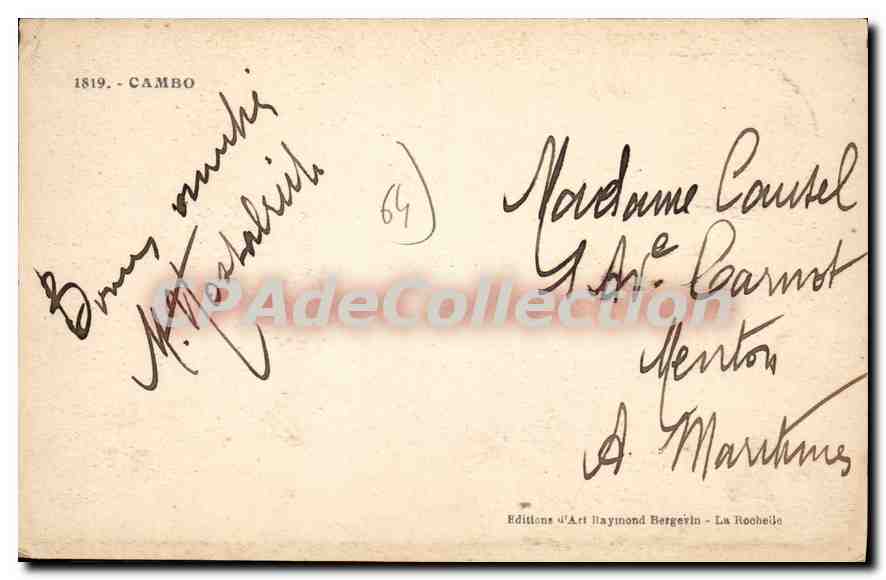 1819. - CAMBO
Bonnes amitiés
M.
64)
Madame Causel
1 Av.e Carnot
Menton
A. Maritimes
CPAdeCollection.com
Editions d'Art Raymond Bergevin - La Rochelle